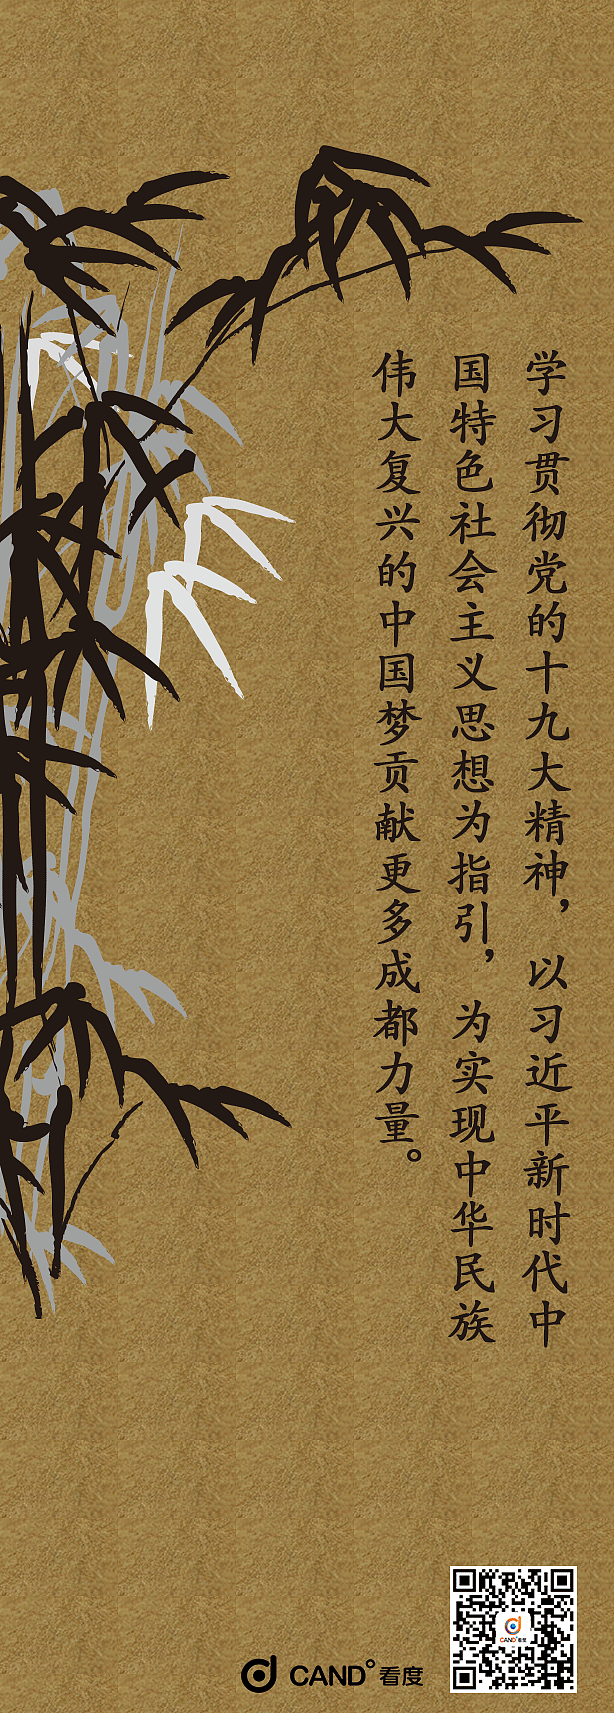 学习贯彻党的十九大精神，以习近平新时代中
国特色社会主义思想为指引，为实现中华民族
伟大复兴的中国梦贡献更多成都力量。
CAND°看度
CAND°看度